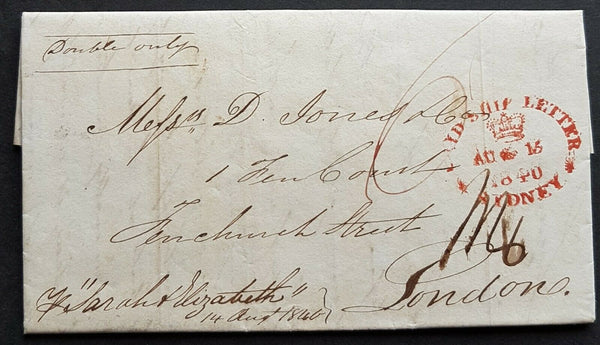 Double only
Messrs D. Jones & Co
1 Fen Court
Fenchurch Street
London.
"Sarah & Elizabeth"
14 Augt 1840
PAID SHIP LETTER
AU 15
1840
SYDNEY
6